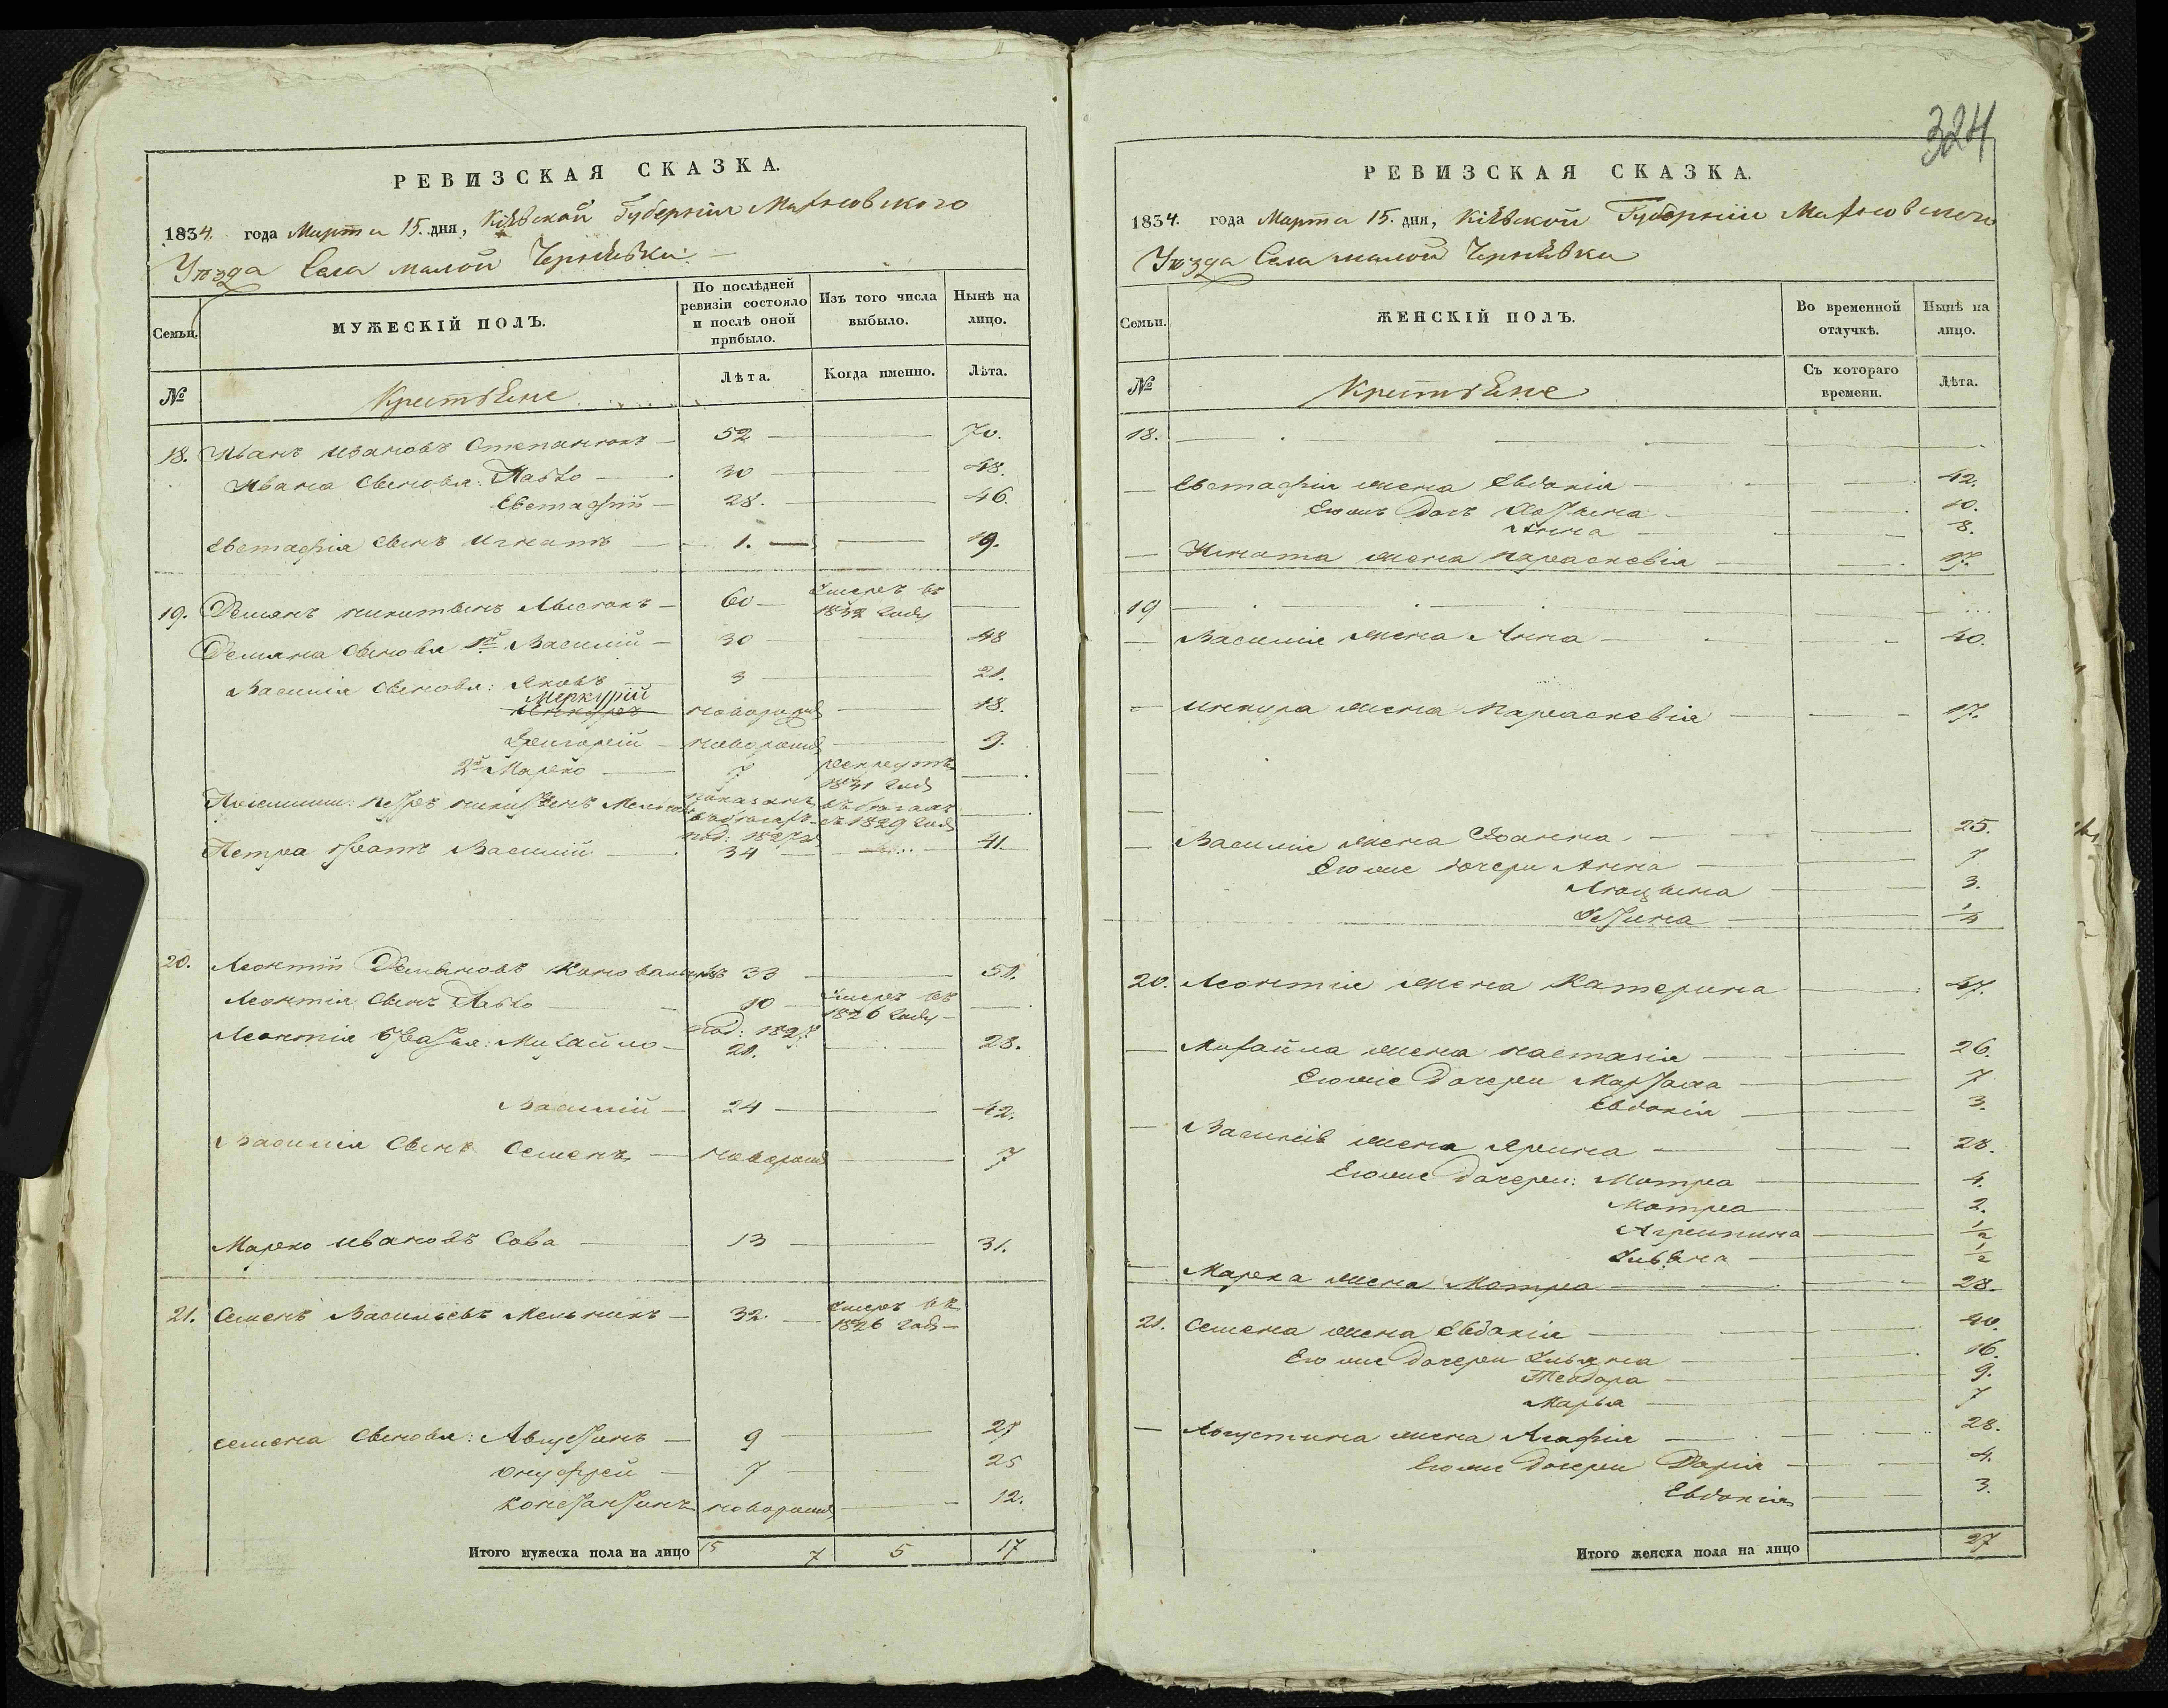 РЕВИЗСКАЯ СКАЗКА.
1834. года Марта 15. дня, Кіевской Губерніи Махновскаго
Уѣзда Села малой Чернявки
Семьи. МУЖЕСКІЙ ПОЛЪ. По послѣдней ревизіи состояло и послѣ оной прибыло. Изъ того числа выбыло. Нынѣ на лицо.
№ Крестьяне Лѣта. Когда именно. Лѣта.
18. Иванъ Ивановъ Степанюкъ 52 70.
Ивана Сыновья: Павло 30 48.
Евстафій 28. 46.
Евстафія Сынъ Игнатъ 1. 19.
19. Демянъ никитинъ 60 Умеръ въ 1832 году
Демяна Сыновья 1й Василій 30 48
Василія Сыновья: Яковъ 3 21.
Меркурій
новорожд 18.
Григорій новорожд 9.
2й Марко 7 рекрутъ 1831 году
Петръ
1829 году
Петра братъ Василій 34 41.
20. Леонтій Демяновъ 33 51.
Леонтія Сынъ Павло 10 Умеръ въ 1826 году
под: 1827
Леонтія братья: Михайло 21. 28.
Василій 24 42.
Василія Сынъ Семенъ новорожд 7
Марко Ивановъ Сова 13 31.
21. Семенъ Васильевъ Мельникъ 32. Умеръ въ 1826 году
Семена Сыновья: Августинъ 9 27
Онуфрей 7 25
Константинъ новорожд 12.
Итого мужеска пола на лицо 15 7 5 17
324
РЕВИЗСКАЯ СКАЗКА.
1834. года Марта 15. дня, Кіевской Губерніи Махновскаго
Уѣзда Села малой Чернявки
Семьи. ЖЕНСКІЙ ПОЛЪ. Во временной отлучкѣ. Нынѣ на лицо.
№ Крестьяне Съ котораго времени. Лѣта.
18.
Евстафія жена Евдокія 42.
Еюжъ Доч 10.
Анна 8.
Игната жена параскевія 17.
19
Василія жена Анна 40.
жена Параскевія 17.
Василія жена Іоанна 25.
Еюже дочери Анна 7
3.
Устина
20. Леонтія жена Катерина 47.
Михайла жена настазія 26.
Еюже Дочери Марѳаа 7
Евдокія 3.
Василія жена Ярина 28.
Еюже Дочери: Мотря 4.
Мотря 2.
Агрепина ½
Ульяна ½
Марка жена Мотря 28.
21. Семена жена Евдокія 40.
Еюже Дочери Ульяна 16.
Теодора 9.
Марья 7
Августина жена Агафія 28.
Еюже Дочери Дарія 4.
Евдокія 3.
Итого женска пола на лицо 27